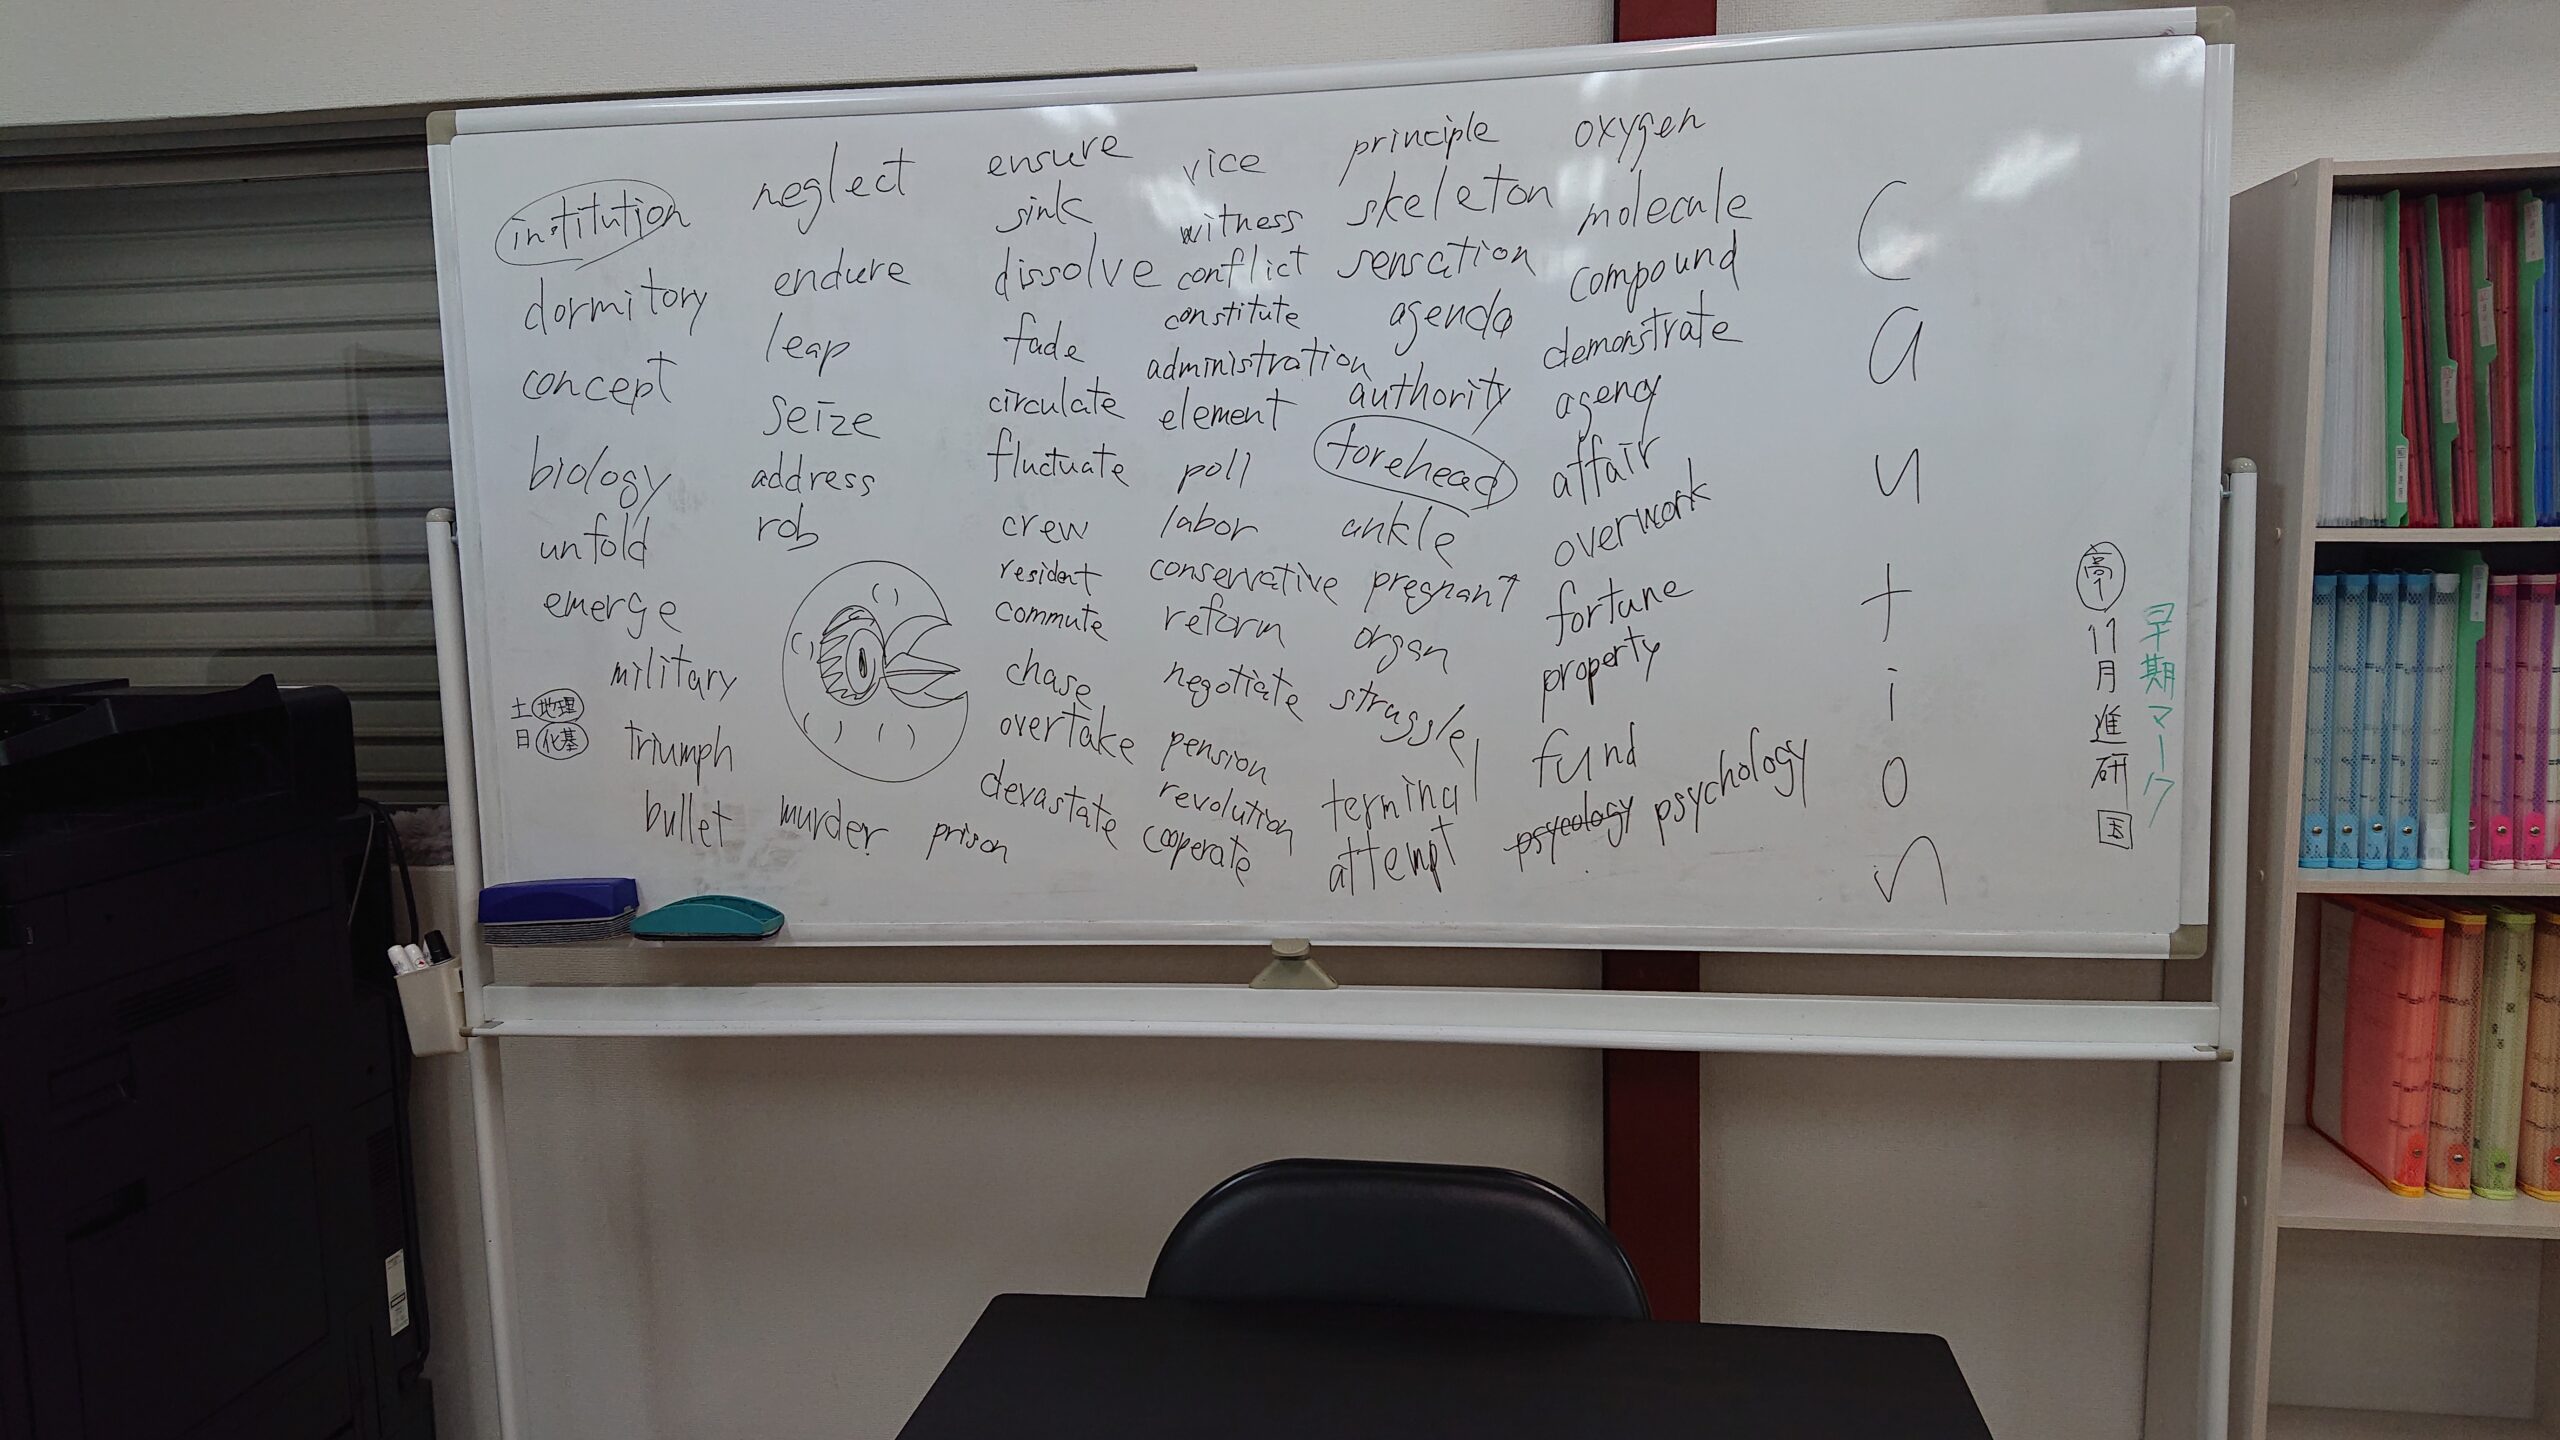 institution
dormitory
concept
biology
unfold
emerge
military
triumph
bullet
土 地理
日 化基
neglect
endure
leap
seize
address
rob
murder
prison
ensure
sink
dissolve
fade
circulate
fluctuate
crew
resident
commute
chase
overtake
devastate
vice
witness
conflict
constitute
administration
element
poll
labor
conservative
reform
negotiate
pension
revolution
cooperate
principle
skeleton
sensation
agenda
authority
forehead
ankle
pregnant
organ
struggle
terminal
attempt
oxygen
molecule
compound
demonstrate
agency
affair
overwork
fortune
property
fund
psycology psychology
C
a
u
t
i
o
n
高1 11月進研 国
早期マーク